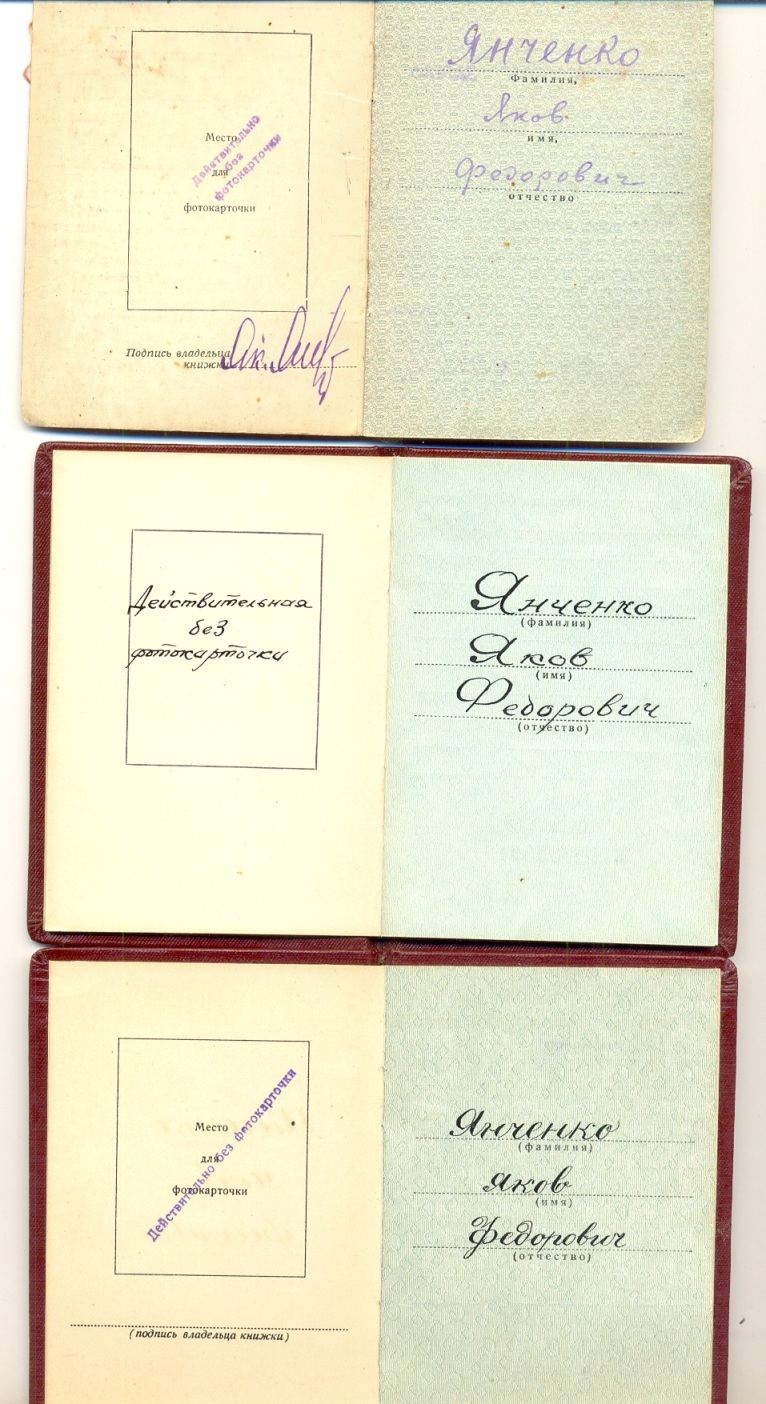 Место
для
фотокарточки
Действительно
без
фотокарточки
Подпись владельца
книжки
Янченко
Фамилия,
Яков
имя,
Федорович
отчество
Действительная
без
фотокарточки
Янченко
(фамилия)
Яков
(имя)
Федорович
(отчество)
Место
для
фотокарточки
Действительно без фотокарточки
(подпись владельца книжки)
Янченко
(фамилия)
Яков
(имя)
Федорович
(отчество)